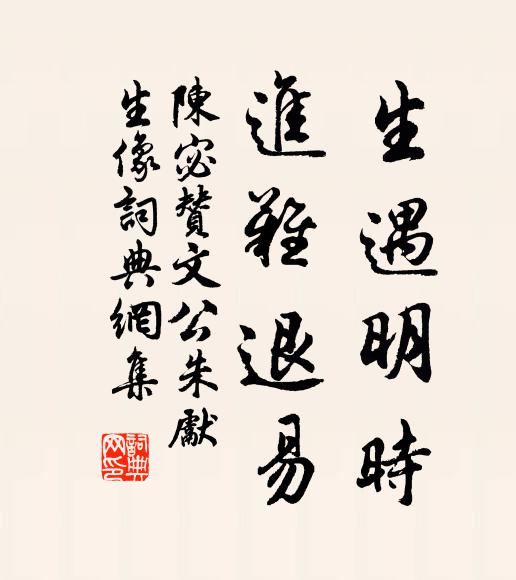 生遇明時
進難退易
陳宓贊文公朱獻
生像詞典網集
詞典网印